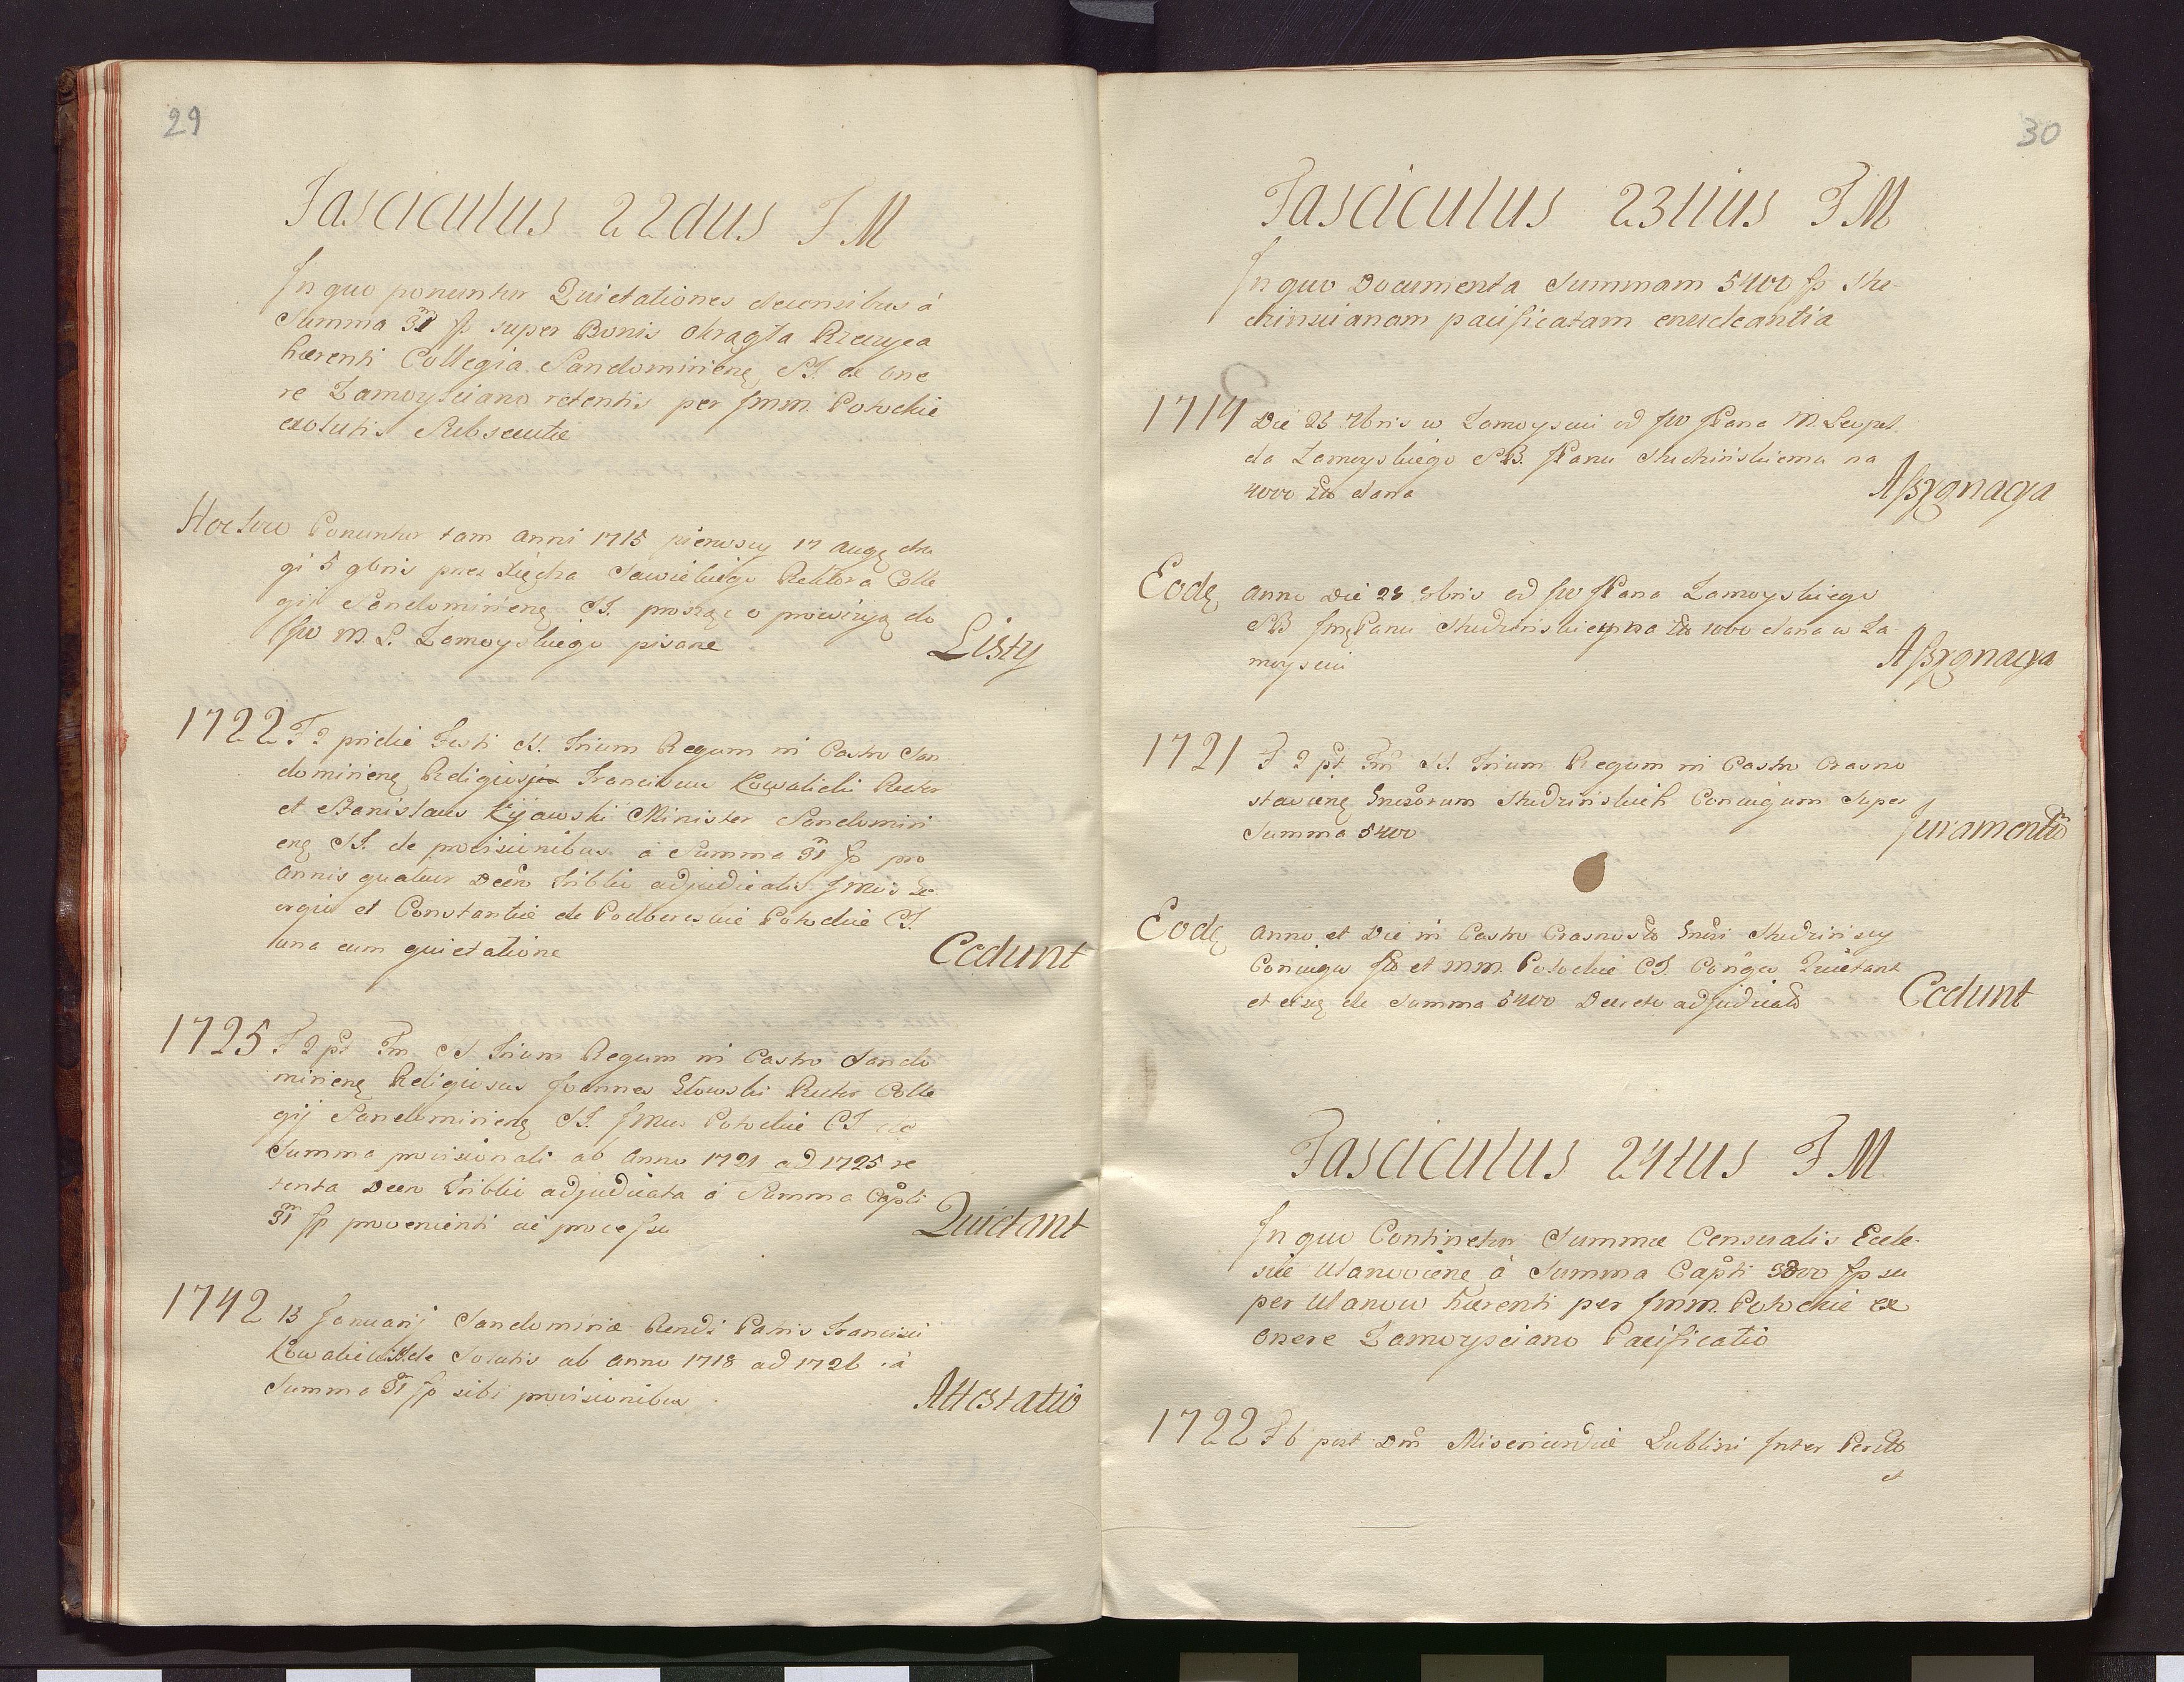 29
Fasciculus 22dus F M
In quo ponuntur Quietationes de censibus á
Summa 3m/1 fp super Bonis Okrągła Rzeczyca
hærenti Collegia Sandomirienę SJ. ex one
re Zamoysciano retentis per Jmm. Potockie
exolutis Subsecutæ
Hoc loco Ponuntur tam anni 1715 pierwszy 17 augę dru
gi 5 9bris przez Xiędza Sawickiego Rektora Colle
gij Sandomirienę SJ. prosząc o prowizyą do
Jw M. L. Zamoyskiego pisane
Listy
1722 F 2 pridie Festi SS. Trium Regum in Castro San
domirienę Religiosi Franciscus Kowalicki Rector
et Stanislaus Kijawski Minister Sandomiri
enę SJ. de provisionibus á Summa 3m/1 fp pro
Annis quatuor Decro Triblii adjudicatis Jmis Ge
orgio et Constantiæ de Podberescie Potockie CJ.
una cum quietatione
Cedunt
1725 F 2 pt Fm SS Trium Regum in Castro Sando
mirienę Religiosus Joannes Słowski Rector Colle
gij Sandomirienę SJ. Jmos Potockie CJ de
Summa provisionali ab Anno 1721 ad 1725 re
tenta Decro Triblii adjudicata á Summa Capli
3m/1 fp provenienti ac processu
Quietant
1742 13 Januarij Sandomiriæ Rendi Patris Francisci
Kowalicki SJ de Solutis ab Anno 1718 ad 1726 á
Summa 3m/1 fp sibi provisionibus
Attestatio
30
Fasciculus 23tius F M
In quo Documenta Summam 5400 fp Stu-
dzinscianam pacificatam enucleantia
1714 Die 23 7bris w Zamoysciu od Jw JPana M. Leopol
da Zamoyskiego SB. JPanu Studzińskiemu na
4000 Zło dana
Assygnacya
Eodę Anno Die 23 8bris od Jw JPana Zamoyskiego
SB JmęPanu Studzinskiemu na Zło 1000 dana w Za
moysciu
Assygnacya
1721 F 2 pt Fm SS. Trium Regum in Castro Crasno
stavienę Gnrsorum Studzinskich Conjugum Super
Summa 5400
Juramentum
Eodę Anno et Die in Castro Crasnosto Gnrsi Studzinscy
Conjuges JJo et mm. Potockie CJ. Conges Quietant
et eisę de Summa 5400 Decreto adjudicato
Cedunt
Fasciculus 24tus F M
In quo Continetur Summæ Censualis Eccle-
siæ Ulanoviene á Summa Capli 3000 fp su
per Ulanow hærenti per Jmm. Potockie ex
onere Zamoysciano Pacificatio
1722 F 6 post Dm Misericordiæ Lublini Inter Perito
et